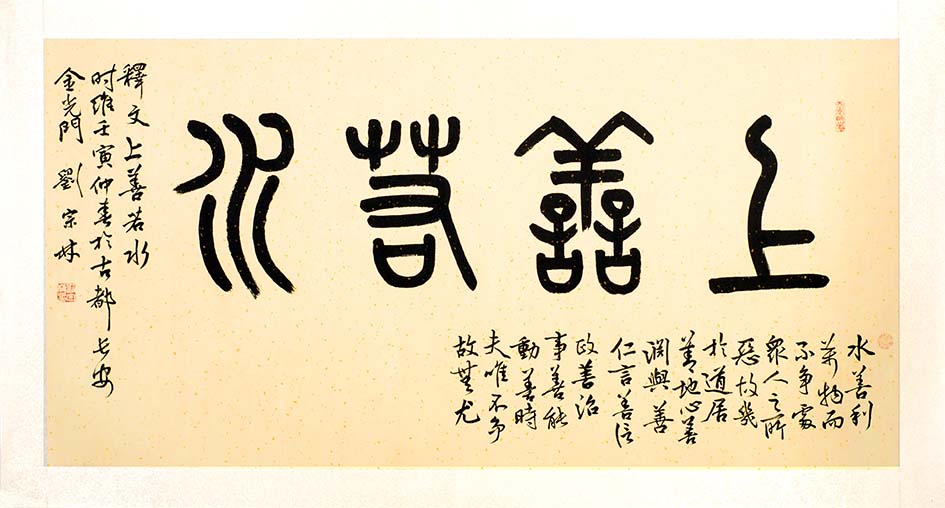 上善若水
水善利
萬物而
不争處
衆人之所
惡故幾
於道居
善地心善
淵與善
仁言善信
政善治
事善能
動善時
夫唯不争
故無尤
釋文上善若水
时維壬寅仲春於古都长安
金光門 劉宗林